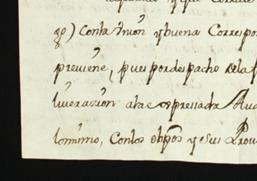 go) Conta Union y buena Correspo
previene, pues por despacho de la f
liveracion a la espressada Au
lo mismo, Con los obpos y sus Prov